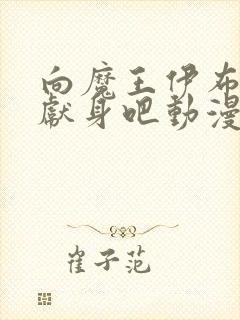 向魔王伊布
獻身吧動漫
崔子范